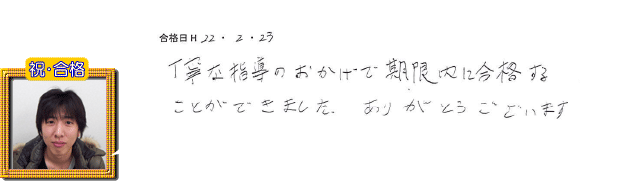 合格日H 22・2・23
祝・合格
丁寧な指導のおかげで期限内に合格する
ことができました。ありがとうございます